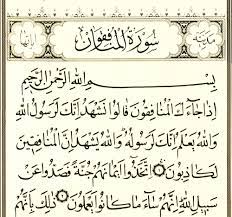 سورة المنافقون
بِسْمِ اللهِ الرَّحْمٰنِ الرَّحِيمِ
إِذَا جَاءَكَ الْمُنَافِقُونَ قَالُوا نَشْهَدُ إِنَّكَ لَرَسُولُ اللهِ
وَاللهُ يَعْلَمُ إِنَّكَ لَرَسُولُهُ وَاللهُ يَشْهَدُ إِنَّ الْمُنَافِقِينَ
لَكَاذِبُونَ اِتَّخَذُوا أَيْمَانَهُمْ جُنَّةً فَصَدُّوا عَنْ
سَبِيلِ اللهِ إِنَّهُمْ سَاءَ مَا كَانُوا يَعْمَلُونَ ذٰلِكَ بِأَنَّهُمْ